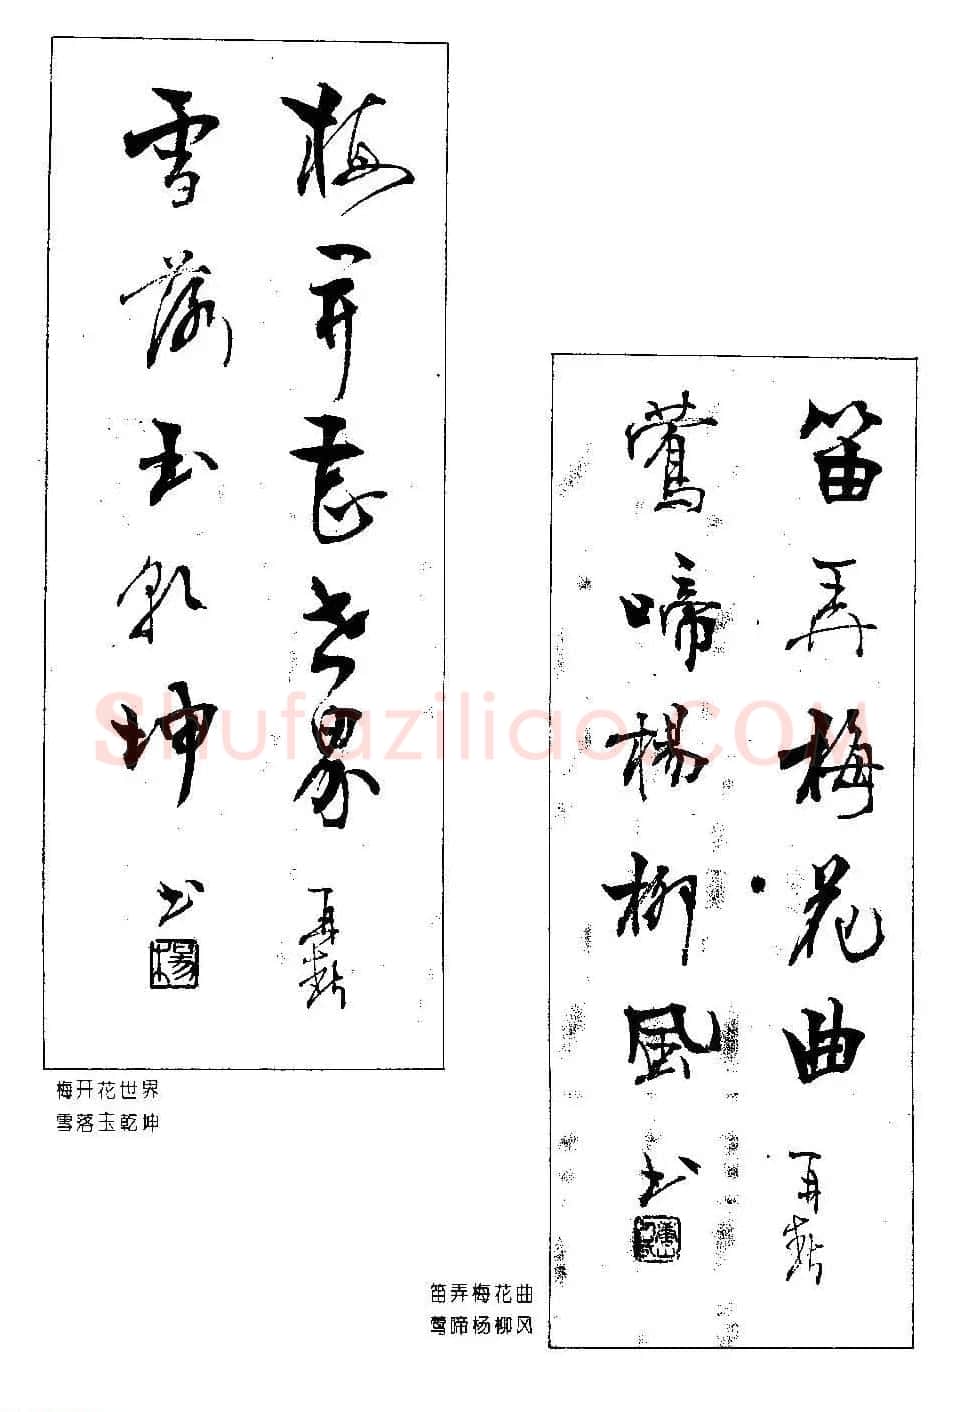 梅开花世界
雪落玉乾坤
书
梅开花世界
雪落玉乾坤
笛弄梅花曲
莺啼杨柳风
书
笛弄梅花曲
莺啼杨柳风
Shufaziliao.COM